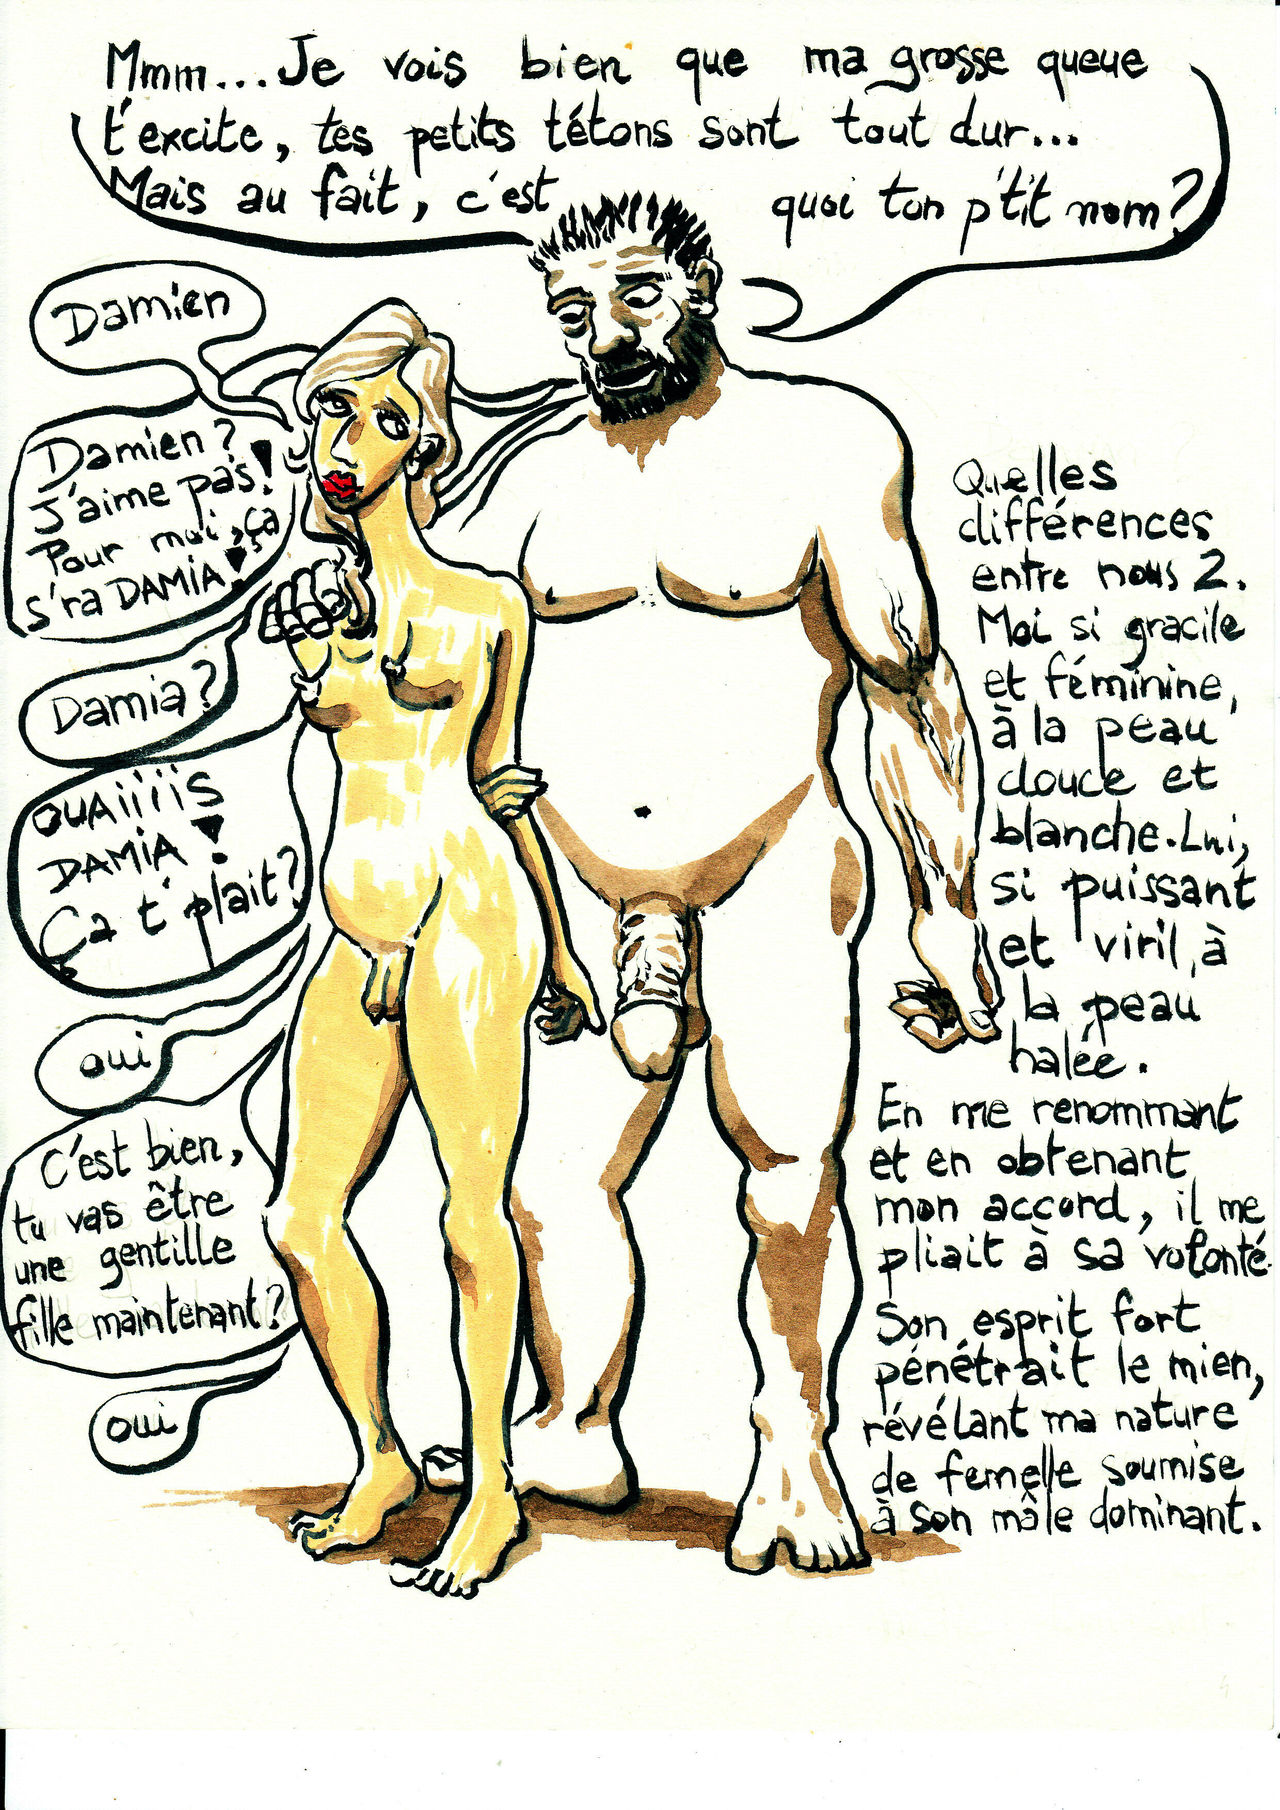 Mmm...Je vois bien que ma grosse queue
t'excite, tes petits tétons sont tout dur...
Mais au fait, c'est quoi ton p'tit nom?
Damien
Damien?
J'aime pas!
Pour moi, ça
s'ra DAMIA!
Damia?
OUAiiiiS
DAMIA!
Ça t'plait?
oui
C'est bien,
tu vas être
une gentille
fille maintenant?
oui
Quelles
différences
entre nous 2.
Moi si gracile
et féminine,
à la peau
douce et
blanche. Lui,
si puissant
et viril, à
la peau
halée.
En me renommant
et en obtenant
mon accord, il me
pliait à sa volonté.
Son esprit fort
pénétrait le mien,
révélant ma nature
de femelle soumise
à son mâle dominant.